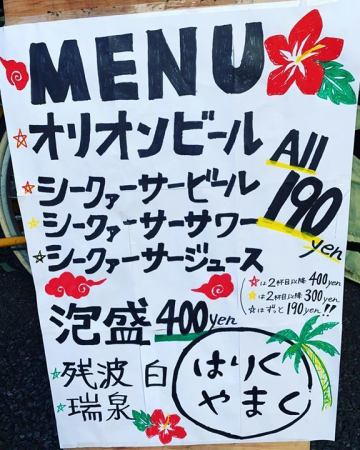 MENU
☆オリオンビール
All
190
yen
☆シークァーサービール
☆シークァーサーサワー
☆シークァーサージュース
☆は2杯目以降 400yen
★は2杯目以降 300yen
☆はずっと 190yen!!
泡盛 400yen
☆残波 白
☆瑞泉
はりく
やまく